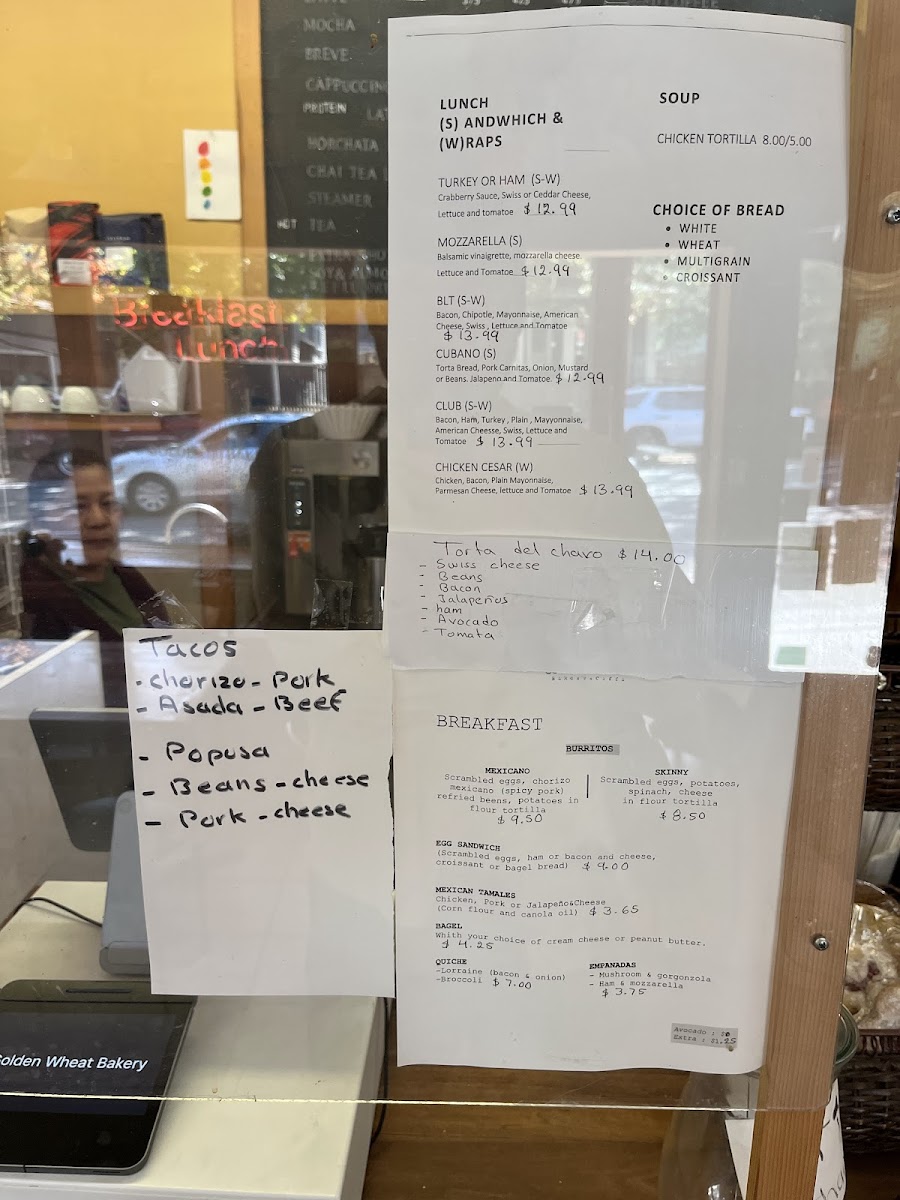 MOCHA
BREVE
CAPPUCCINO
PROTEIN
HORCHATA
CHAI TEA
STEAMER
HOT TEA
Breakfast
Lunch
LUNCH
(S) ANDWHICH &
(W)RAPS
TURKEY OR HAM (S-W)
Crabberry Sauce, Swiss or Ceddar Cheese,
Lettuce and tomatoe $12.99
MOZZARELLA (S)
Balsamic vinaigrette, mozzarella cheese.
Lettuce and Tomatoe $12.99
BLT (S-W)
Bacon, Chipotle, Mayonnaise, American
Cheese, Swiss, Lettuce and Tomatoe
$13.99
CUBANO (S)
Torta Bread, Pork Carnitas, Onion, Mustard
or Beans. Jalapeno and Tomatoe. $12.99
CLUB (S-W)
Bacon, Ham, Turkey, Plain, Mayyonnaise,
American Cheesse, Swiss, Lettuce and
Tomatoe $13.99
CHICKEN CESAR (W)
Chicken, Bacon, Plain Mayonnaise,
Parmesan Cheese, lettuce and Tomatoe $13.99
SOUP
CHICKEN TORTILLA 8.00/5.00
CHOICE OF BREAD
• WHITE
• WHEAT
• MULTIGRAIN
• CROISSANT
Torta del chavo $14.00
- Swiss cheese
- Beans
- Bacon
- Jalapeños
- ham
- Avocado
- Tomata
Tacos
- chorizo - Pork
- Asada - Beef
- Popusa
- Beans - cheese
- Pork - cheese
BREAKFAST
BURRITOS
MEXICANO
Scrambled eggs, chorizo
mexicano (spicy pork)
refried beens, potatoes in
flour tortilla
$9.50
SKINNY
Scrambled eggs, potatoes,
spinach, cheese
in flour tortilla
$8.50
EGG SANDWICH
(Scrambled eggs, ham or bacon and cheese,
croissant or bagel bread) $9.00
MEXICAN TAMALES
Chicken, Pork or Jalapeño&Cheese
(Corn flour and canola oil) $3.65
BAGEL
Whith your choice of cream cheese or peanut butter.
$4.25
QUICHE
-Lorraine (bacon & onion)
-Broccoli $7.00
EMPANADAS
- Mushroom & gorgonzola
- Ham & mozzarella
$3.75
Avocado :
Extra : $1.25
Golden Wheat Bakery